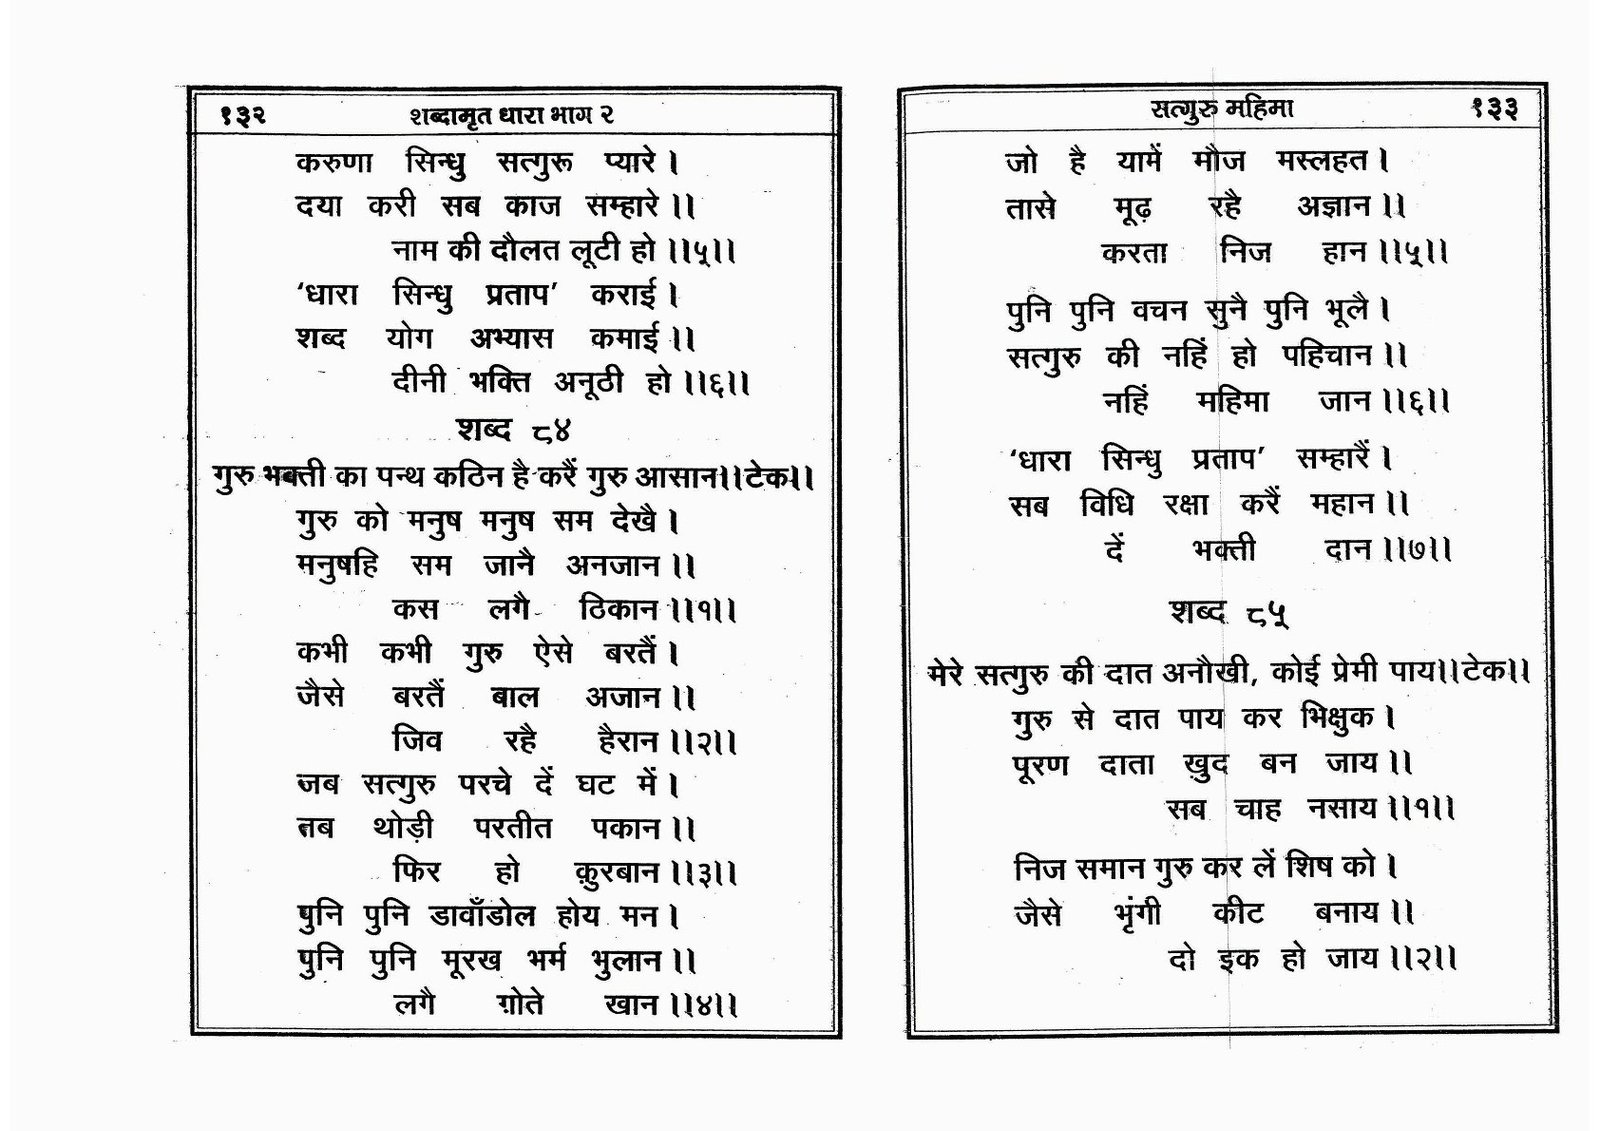 १३२ शब्दामृत धारा भाग २
करुणा सिन्धु सत्गुरू प्यारे ।
दया करी सब काज सम्हारे ।।
नाम की दौलत लूटी हो ।।५।।
‘धारा सिन्धु प्रताप’ कराई ।
शब्द योग अभ्यास कमाई ।।
दीनी भक्ति अनूठी हो ।।६।।
शब्द ८४
गुरु भक्ती का पन्थ कठिन है करैं गुरु आसान।।टेक।।
गुरु को मनुष मनुष सम देखै ।
मनुषहि सम जानै अनजान ।।
कस लगै ठिकान ।।१।।
कभी कभी गुरु ऐसे बरतैं ।
जैसे बरतैं बाल अजान ।।
जिव रहै हैरान ।।२।।
जब सत्गुरु परचे दें घट में ।
तब थोड़ी परतीत पकान ।।
फिर हो क़ुरबान ।।३।।
पुनि पुनि डावाँडोल होय मन ।
पुनि पुनि मूरख भर्म भुलान ।।
लगै ग़ोते खान ।।४।।
सत्गुरु महिमा १३३
जो है यामें मौज मस्लहत ।
तासे मूढ़ रहै अज्ञान ।।
करता निज हान ।।५।।
पुनि पुनि वचन सुनै पुनि भूलै ।
सत्गुरु की नहिं हो पहिचान ।।
नहिं महिमा जान ।।६।।
‘धारा सिन्धु प्रताप’ सम्हारैं ।
सब विधि रक्षा करैं महान ।।
दें भक्ती दान ।।७।।
शब्द ८५
मेरे सत्गुरु की दात अनौखी, कोई प्रेमी पाय।।टेक।।
गुरु से दात पाय कर भिक्षुक ।
पूरण दाता ख़ुद बन जाय ।।
सब चाह नसाय ।।१।।
निज समान गुरु कर लें शिष को ।
जैसे भृंगी कीट बनाय ।।
दो इक हो जाय ।।२।।